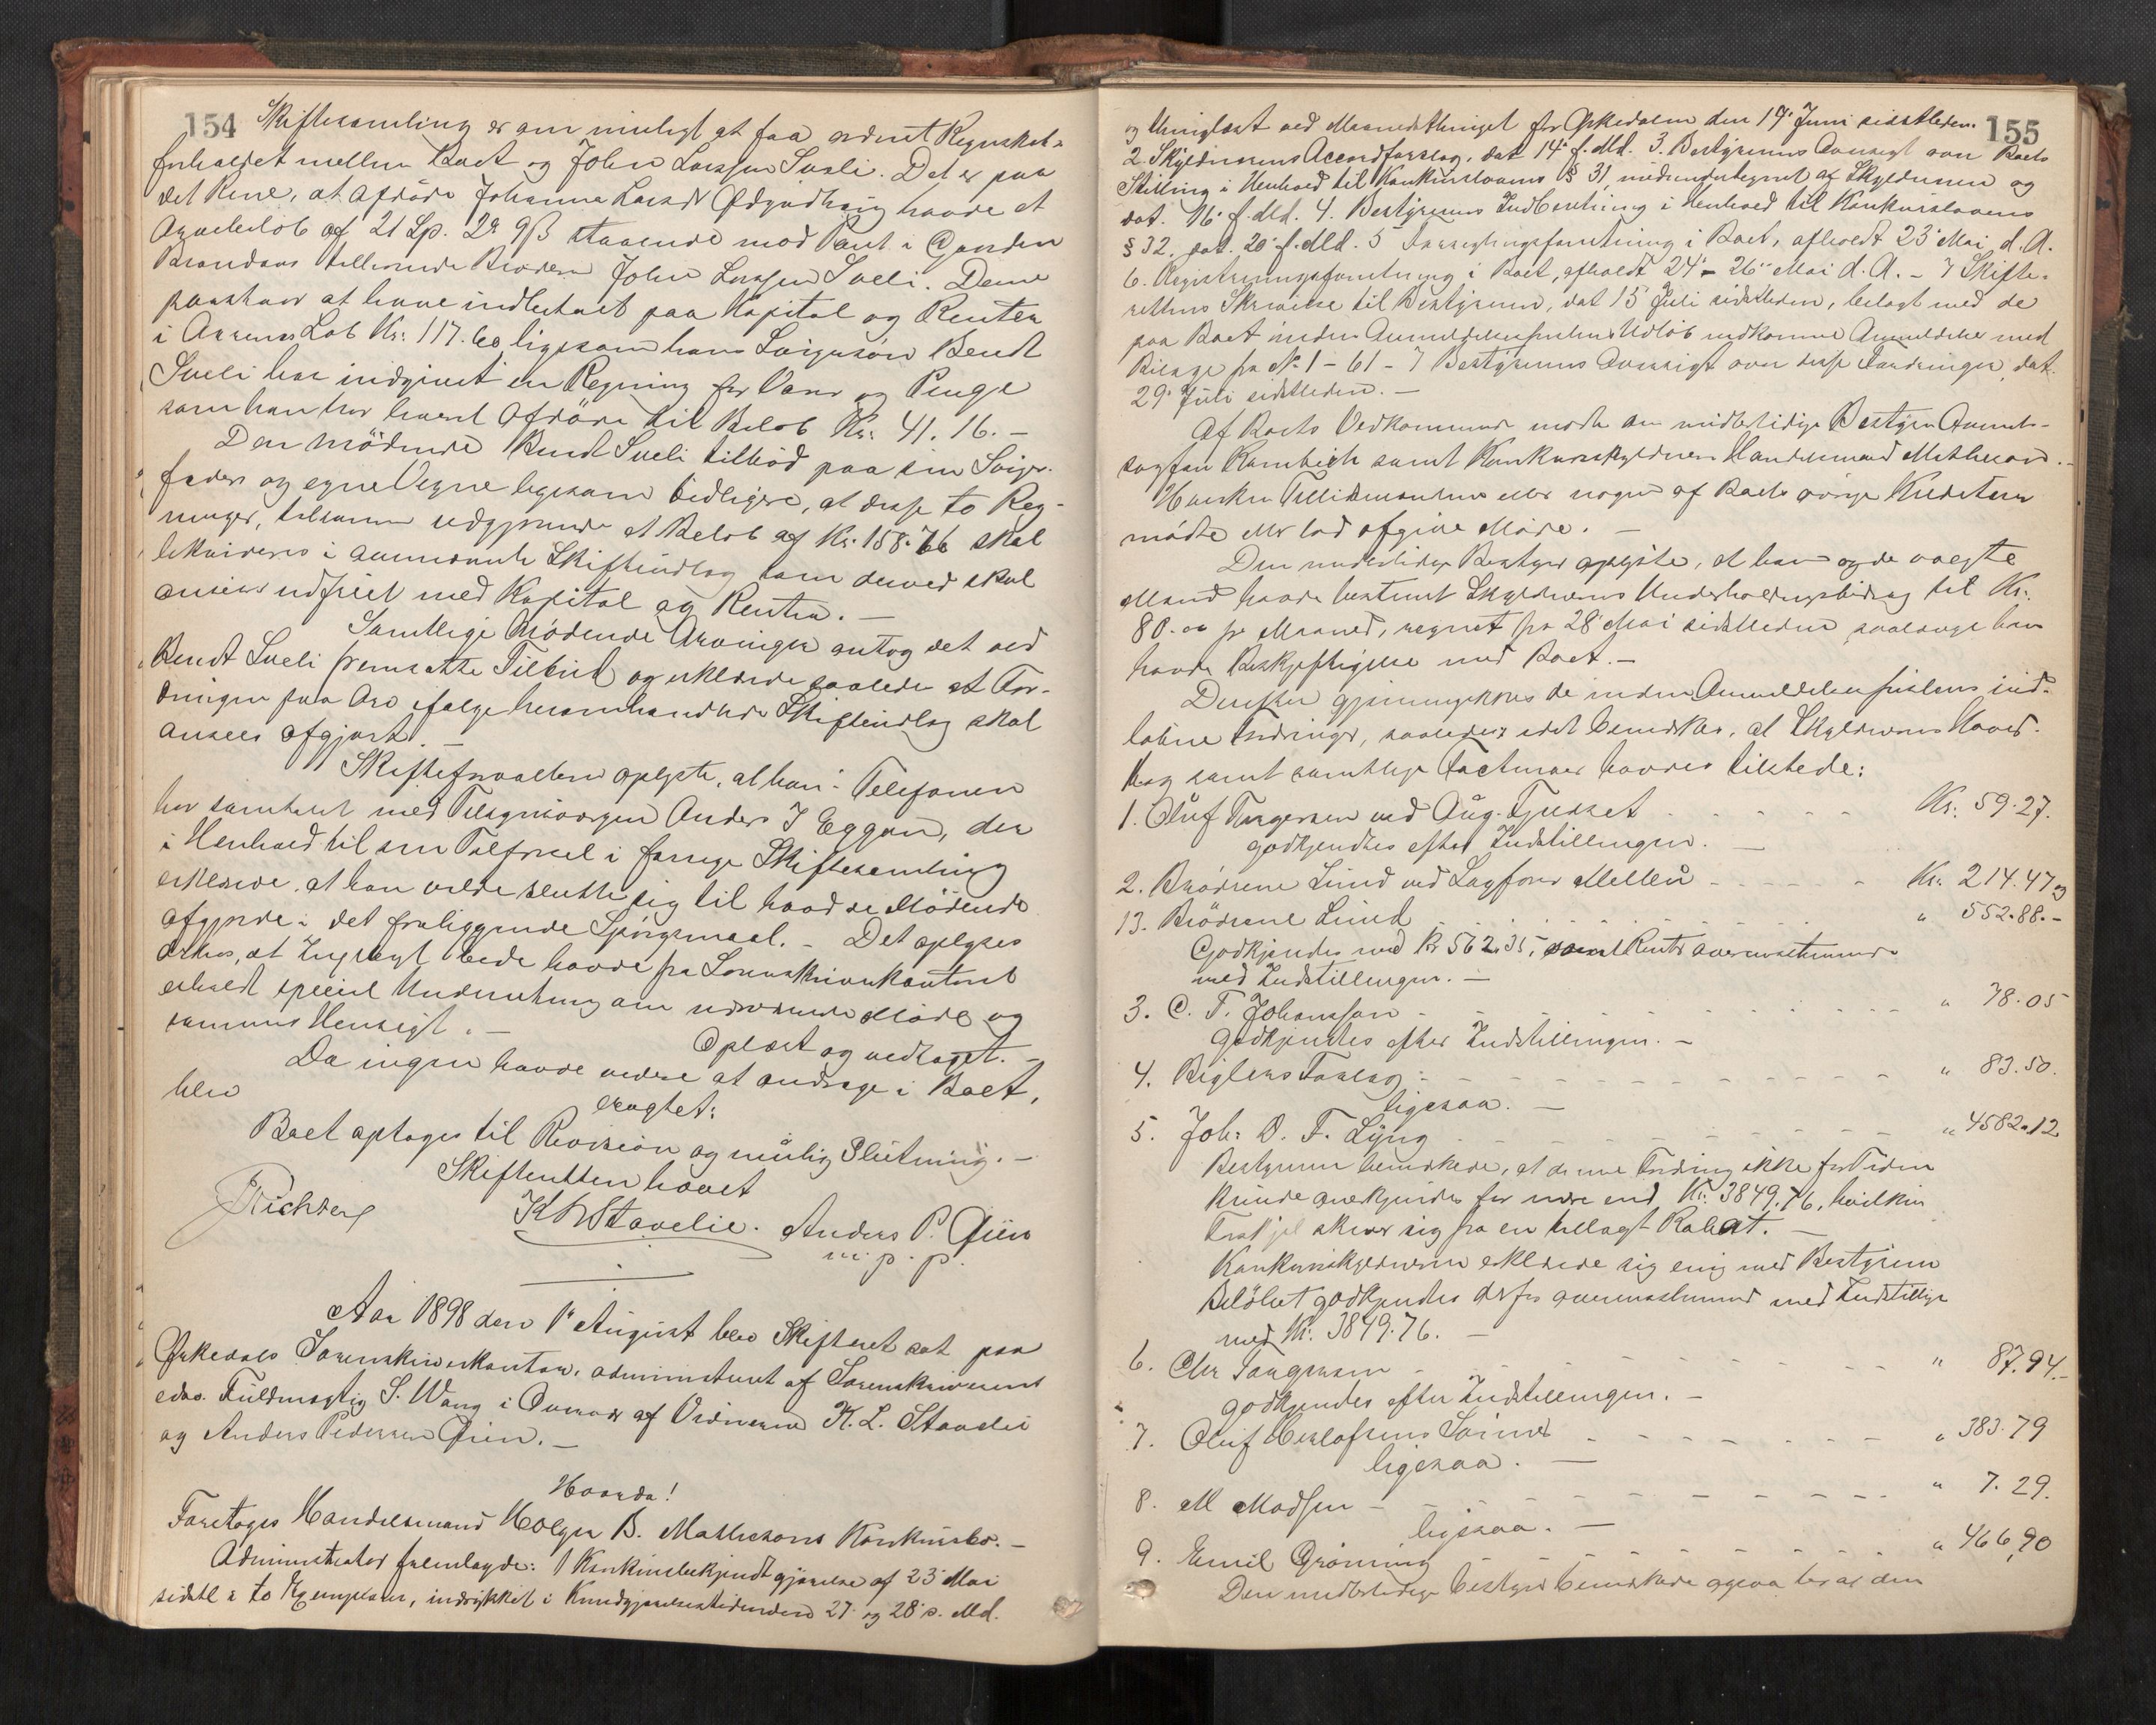 154
Skiftesamling er om muligt at faa ordnet Regnskabs-
forholdet mellem Boet og John Larssen Sveli. Det er paa
det Rene, at afdøde Johanna Larsdr havde et
af 21 Sp. 2 # 9 ß staaende mod Pant i Gaarden
tilhørende Broderen John Larssen Sveli. Denne
paastaar at have indbetalt paa Kapital og Renter
i Aarenes Løb Kr: 117.60 ligesom hans Svigersøn Bendt
Sveli har indgivet en Regning for Varer og Penge
som han har laant Afdøde til Beløb Kr: 41.16. -
Den mødende Bendt Sveli tilbød paa sin Sviger-
faders og egne Vegne ligesom tidligere, at disse to Reg-
ninger, tilsammen udgjørende et Beløb af Kr: 158.76 skal
likvideres i Skifteudlæg som derved skal
ansees indfriet med Kapital og Renter. -
Samtlige Mødende Arvinger antog det ved
Bendt Sveli fremsatte Tilbud og erklærede saaledes at For-
dringen paa Arv ifølge Skifteudlæg skal
ansees afgjort. -
Skifteforvalteren oplyste, at han i Telefonen
har samtalet med Anders J Eggan, der
i Henhold til sin i forrige Skiftesamling
erklærede, at han vilde slutte sig til hvad de Mødende
afgjorde i det foreliggende Spørgsmaal. - Det oplyses
at havde fra Sorenskriverkontoret
erholdt speciel Underretning om nærværende Møde og
sammes Hensigt. -
Oplæst og vedtaget. -
Da ingen havde videre at andrage i Boet,
blev
eragtet:
Boet optages til Revision og mulig Slutning. -
Skifteretten hævet
Richter K L Stavelie. Anders P. Øien
m. p. p.
Aar 1898 den 1ste August blev Skifteret sat paa
Orkedals Sorenskriverkontor, administreret af Sorenskriverens
edsv. Fuldmægtig S. Wang i Overvær af Vidnerne K. L. Stavelie
og Anders Pedersen Øien. -
Hvorda!
Foretoges Handelsmand Holger B. Mathesons Konkursbo. -
Administrator fremlagde: 1 Konkursbekjendtgjørelse af 23 Mai
sidstl i to Exemplarer, indrykket i Kundgjørelsestidenden 27 og 28 s. Md.
155
og thinglæst ved Maanedsthinget for Orkedalen den 17 Juni sidstleden.
2. Skyldnerens Accordforslag, dat 14 f. Md. 3. Bestyrerens Oversigt over Boets
Stilling i Henhold til Konkurslovens § 31, medundertegnet af Skyldneren og
dat. 16 f. Md. 4. Bestyrerens Indberetning i Henhold til Konkurslovens
§ 32, dat. 20 f. Md. 5 Forseglingsforretning i Boet, afholdt 23 Mai d. A.
6. Registreringsforretning i Boet, afholdt 24 - 26 Mai d. A. - 7 Skifte-
rettens Skrivelse til Bestyreren, dat 15 Juli sidstleden, belagt med de
paa Boet inden Anmeldelsesfristens Udløb indkomne Anmeldelser med
Bilage fra No 1 - 61 - 7 Bestyrerens Oversigt over disse Fordringer, dat.
29 Juli sidstleden. -
Af Boets Vedkommende mødte den midlertidige Bestyrer
sagfører samt Konkursskyldneren Handelsmand Matheson. -
Hverken Tillidsmændene eller nogen af Boets øvrige Kreditorer
mødte eller lod afgive Møde. -
Den midlertidige Bestyrer oplyste, at han og de valgte
Mænd havde bestemt Skyldnerens Underholdningsbidrag til Kr.
80.00 pr Maaned, regnet fra 28 Mai sidstleden saalænge han
havde Beskjæftigelse med Boet. -
Derefter gjennemgikkes de inden Anmeldelsesfristens ind-
løbne Fordringer, saaledes idet bemærkes, at Skyldnerens Hoved-
bog samt samtlige Facturaer havdes tilstede:
1. Oluf Torgersen ved Aug. Kr: 59.27.
godkjendtes efter Indstillingen. -
2. Brødrene Lund ved Sagfører Kr. 214.47 og
13. Brødrene Lund " 552.88. -
Godkjendes med Kr 562.35, samt Renter overensstemmende
med Indstillingen. -
3. C. T. Johanssen - " 78.05
godkjendtes efter Indstillingen. -
4. Biglers Forlag - " 83.50.
ligesaa. -
5. Joh: D. F. Lyng " 4582.12
Bestyreren bemærkede, at denne Fordring ikke for Tiden
kunde anerkjendes for mere end Kr: 3849.76, hvilken
skriver sig fra en tillagt Rabat. -
Konkursskyldneren erklærede sig enig med Bestyreren
Beløbet godkjendes derfor overensstemmende med Indstillingen
med Kr. 3849.76. -
6. Chr Torgersen " 87.94. -
godkjendes efter Indstillingen. -
7. Oluf Herlofsens Sønner " 383.79
ligesaa. -
8. M Madsen - " 7.29.
ligesaa. -
9. Emil Grønning " 466,90
Den midlertidige Bestyrer bemærkede ogsaa den